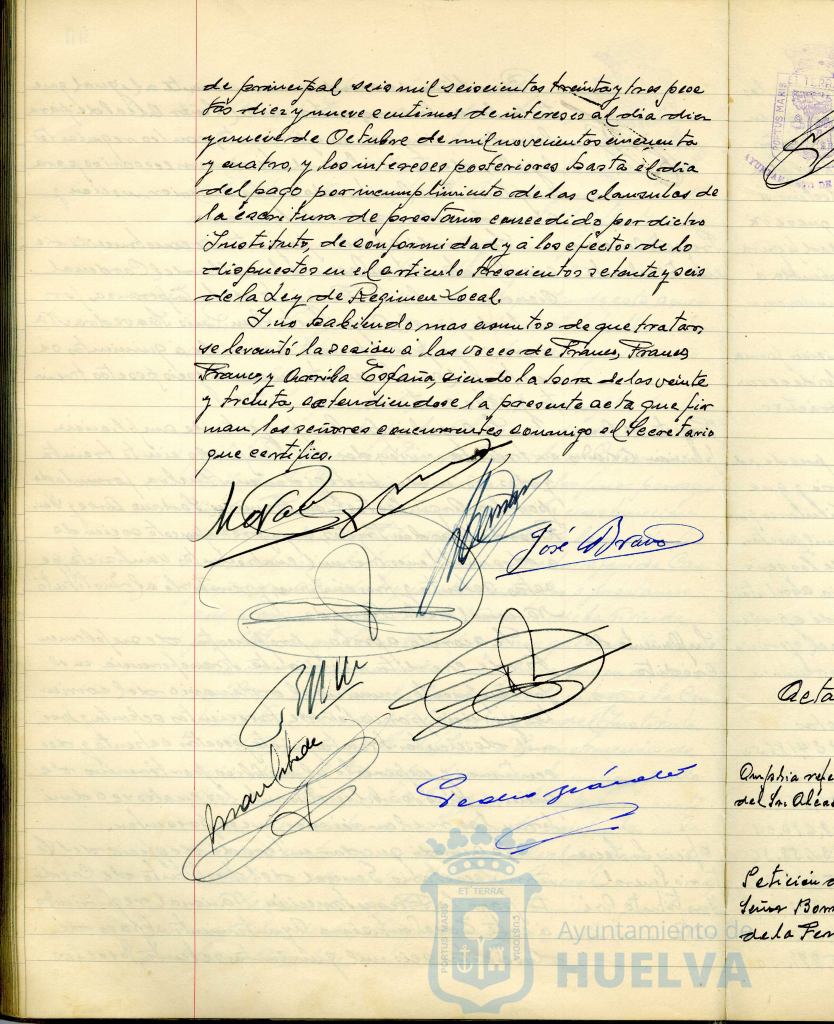 de principal, seis mil seiscientos treinta y tres pese
tas diez y nueve centimos de intereses al dia diez
y nueve de Octubre de mil novecientos cincuenta
y cuatro, y los intereses posteriores hasta el dia
del pago por incumplimiento de las clausulas de
la escritura de prestamo concedido por dicho
Instituto, de conformidad y á los efectos de lo
dispuestos en el articulo trescientos setenta y seis
de la Ley de Regimen Local.
Y no habiendo mas asuntos de que tratar,
se levantó la sesion á las voces de Franco, Franco,
Franco, y Arriba España, siendo la hora de las veinte
y treinta, extendiendose la presente acta que fir
man los señores concurrentes conmigo el Secretario
que certifico.
José Bravo
Pedro
Acta
del Sr. Alca
Petición
Señor
de la
PORTUS MARIS
ET TERRÆ
CUSTODIA
Ayuntamiento de
HUELVA